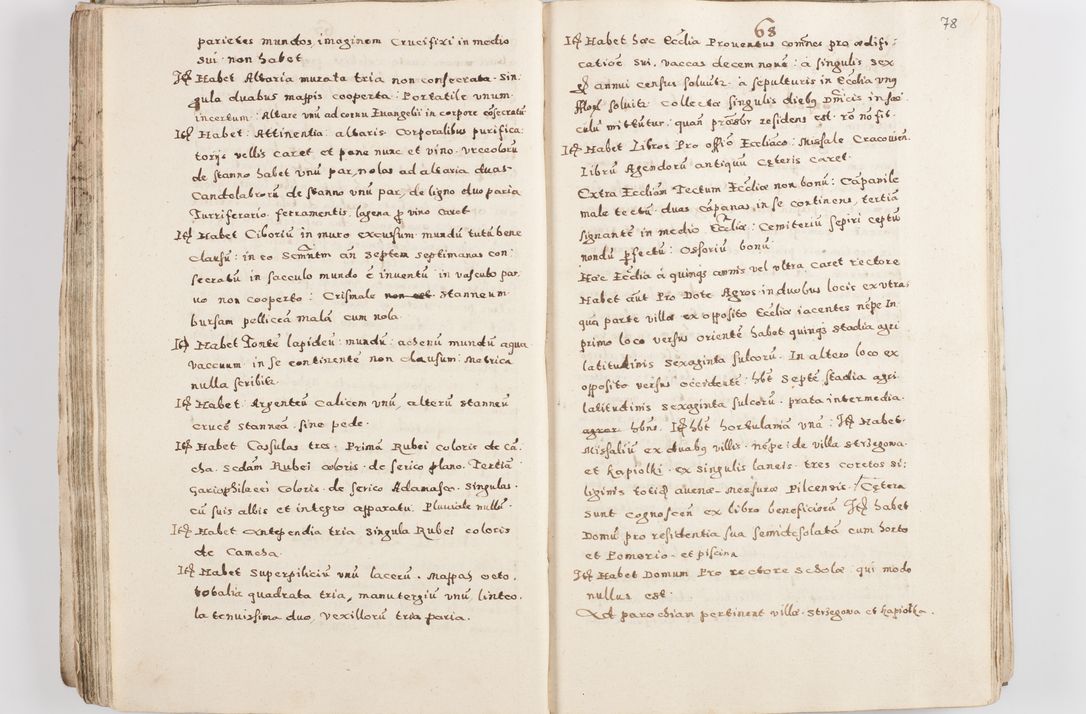 parietes mundos imaginem Crucifixi in medio
sui non habet
Itē Habet Altaria murata tria non consecrata. Sin=
gula duabus mappis cooperta: Portatile unum
incertum: Altare unū ad cornu Euangelii in corpore cōsecratū
Itē Habet: Attinentia altaris Corporalibus purifica:
torijs vellis caret et pane nunc et vino. Vrceolorū
de stanno habet unū par, nolas ad altaria duas
Candelabrorū de stanno unū par, de ligno duo paria
Turriferario ferramentis, lagena p̄ vino caret
Itē Habet Ciboriū in muro excussum mundū tutū bene
clausū: in eo Scm̄ntm̄ an̄ Septem septimanas con:
secratū in sacculo mundo ē inuentū in vasculo par
uo non cooperto: Crismale non est stanneum
bursam pelliceā malā cum nola
Itē Habet Fontē lapideū: mundū: aehenū mundū aqua
vacuum in se continentē non clausum: Metrica
nulla scribitr.
Itē Habet Argenteū Calicem unū, alterū stanneū
crucē stanneā, sine pede.
Itē Habet Casulas tres: Primā Rubei coloris de Cā:
cha. Secdam Rubei coloris. de serico plano. Tertiā
Gariophilacei coloris. de serico Adamasca. Singulas
cū suis albis et integro apparatu. Pluuiale nullū.
Itē Habet Antependia tria singula Rubei coloris
de Camcha.
Itē Habet Superpiliciū unū lacerū. Mappas octo.
tobalia quadrata tria, manutergiū unū linteo.
la tenuissima duo, vexillorū tria paria.
68
78
Itē Habet hæc Ecclīa Prouentus com̄nes pro ædifi:
catiōē sui, vaccas decem nouē: a singulis sex
gſ annui census soluūtr. a sepulturis in Ecclīa unus
soluitr collecta singulis diebus Dn̄icis in sac
culū mittūtur: quan̄ præsbr̄ residens est. rō no fit.
Itē Habet Libros Pro offō Eccliaco: Missale Cracouien̄.
Librū Agendorū antiquū Cæteris caret.
Extra Eccliam Tectum Eccliæ non bonū: Cāpanile
male tectū. duas cāpanas, in se continens, tertiā
signantē in medio Eccliæ: Cemiteriū sepiri ceptū
nondū p̄fectū: Ossoriū bonū
Hæc Ecclīa a quinqs annis vel ultra caret rectore
Habet aūt Pro Dote Agros in duobus locis ex utra:
qua parte villæ ex opposito Eccliæ iacentes nēpe In
primo loco versus orientē habet quinqs stadia agri
latitudinis sexaginta sulcorū. In altero loco ex
opposito versus occidentē: hbt̄ septē stadia agri
latitudinis sexaginta sulcorū. prata intermedia
agror hbn̄s. Itē hbt̄ hortulaniā unā: Itē Habet
Missaliū ex duabus villis. nēpe: de villa Strzegowa.
et Kapiolki. ex singulis laneis. tres coretos si:
liginis totidē auenæ. Mensuræ Pilcensis. Cætera
sunt cognoscen̄ ex libro beneficiorū Itē habet
Domū pro residentia sua semidesolatā cum horto
et Pomorio. et piscina
Itē Habet Domum Pro rectore scholæ. qui modo
nullus est.
Ad parochiam pertinent villæ. Strzegowa et Kapiolka.